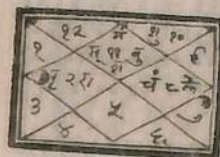 १२ मं शु १०
१ सू ११ बु ९
श
२ रा चं ८ के
३ ५ ७
४ ६